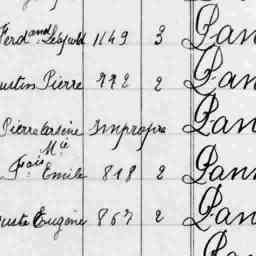 Ferd^and Léopold 1149 3 Pan
ustin Pierre 772 2 Pan
Pierre arsène Impropre Pan
M^ie
F^ois Emile 818 2 Pan
uste Eugène 867 2 Pan
Pan